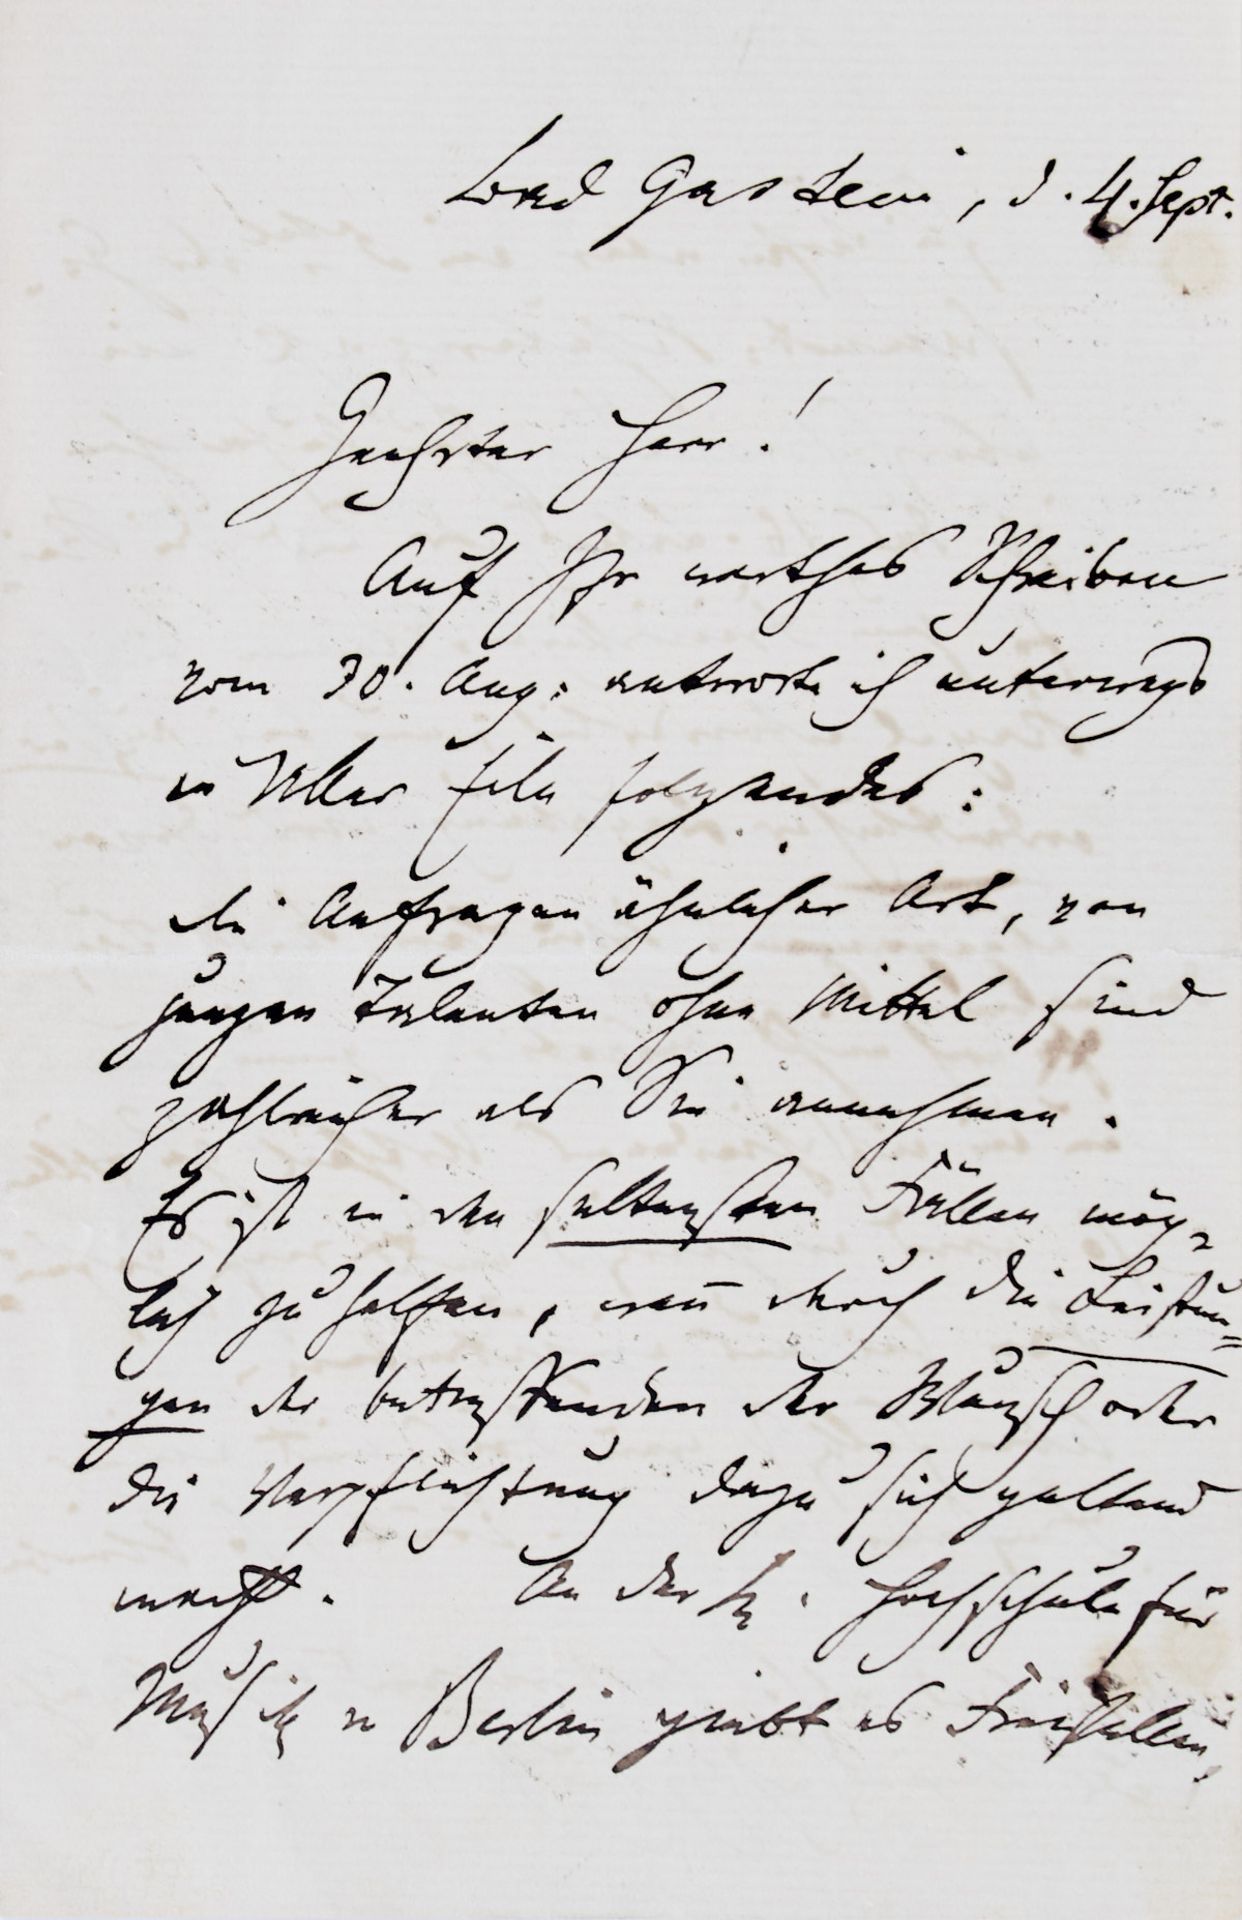 Bad Gastein, d. 4. Sept.
Geehrter Herr!
Auf Ihr werthes Schreiben
vom 30. Aug: antworte ich unterwegs
in aller Eile folgendes:
die Anfragen ähnlicher Art, von
jungen Talenten ohne Mittel sind
zahlreicher als Sie annehmen.
Es ist in den seltensten Fällen mög-
lich zu helfen, wen̄ durch die Leistun=
gen der betreffenden der Wunsch oder
die Verpflichtung dazu sich geltend
macht. An der k. Hochschule für
Musik in Berlin giebt es Freistellen,